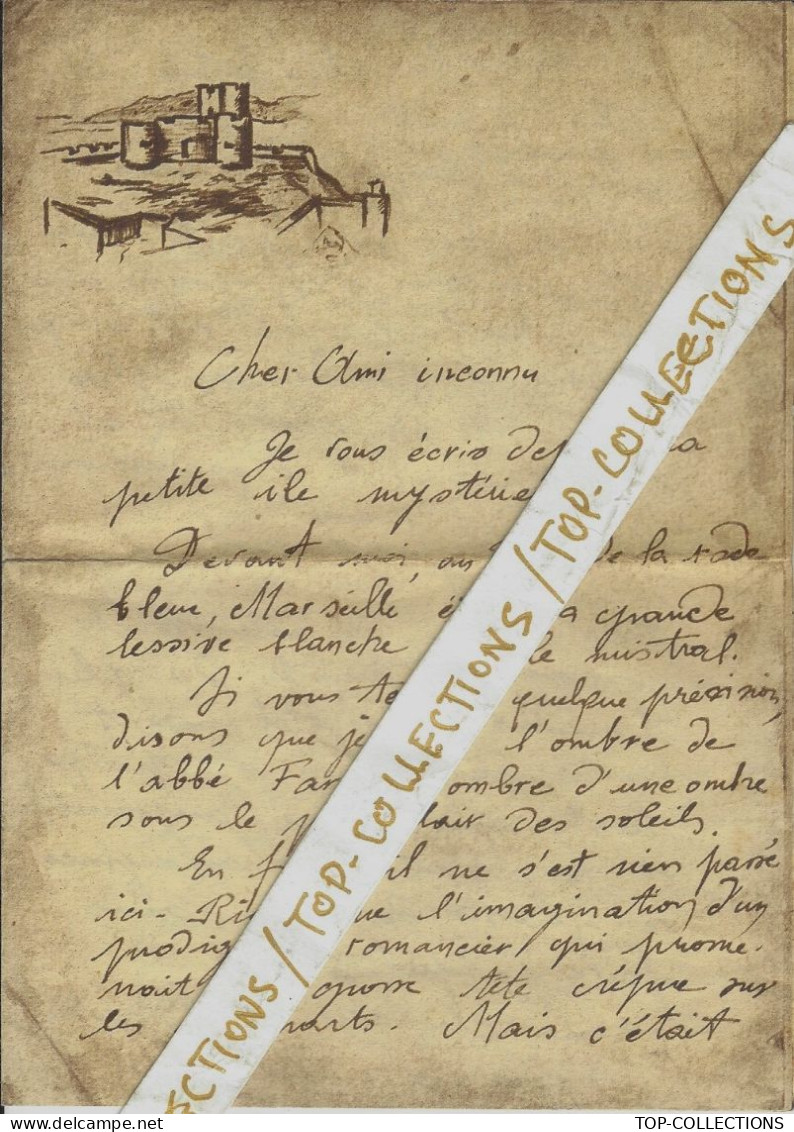 Cher Ami inconnu
Je vous écris
petite ile
Devant moi, au de la rade
bleue, Marseille grande
lessive blanche le mistral.
Si vous quelque précision,
disons que je l'ombre de
l'abbé ombre d'une ombre
sous le clair des soleils.
En il ne s'est rien passé
ici - l'imagination d'un
romancier qui prome-
nait grosse tête crépue sur
les Mais c'était
ECTIONS / TOP-COLLECTIONS / TOP-COLLECTIONS / TOP-COLLECTIONS
TOP-COLLECTIONS